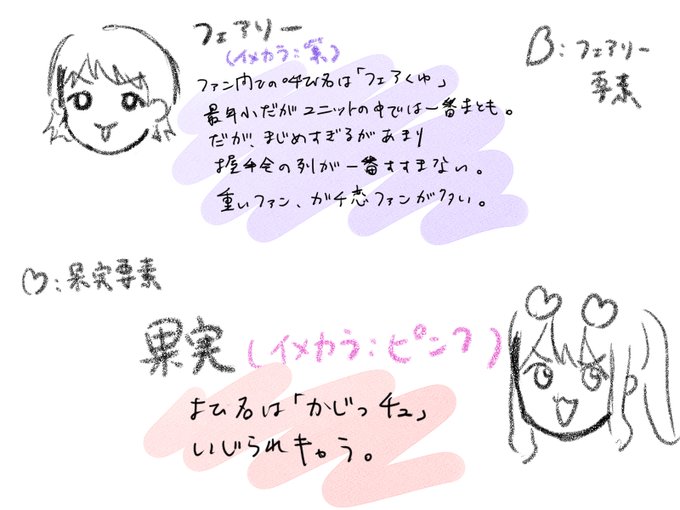 フェアリー
(イメカラ:紫)
ファン内での呼び名は「フェアくゅ」
最年小だがユニットの中では一番まとも。
だが、まじめすぎるがあまり
握手会の列が一番すすまない。
重いファン、ガチ恋ファンが多い。
B:フェアリー
要素
♡:果実要素
果実(イメカラ:ピンク)
よび名は「かじっチュ」
いじられキャラ。